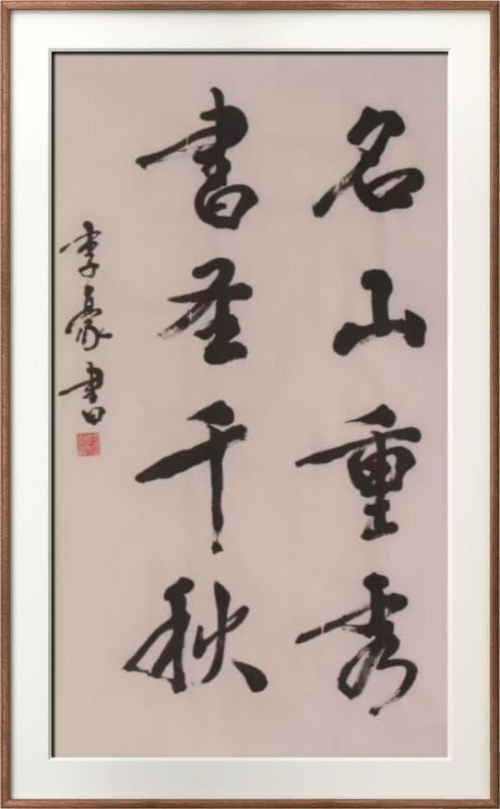 名山重秀
書圣千秋
李豪書